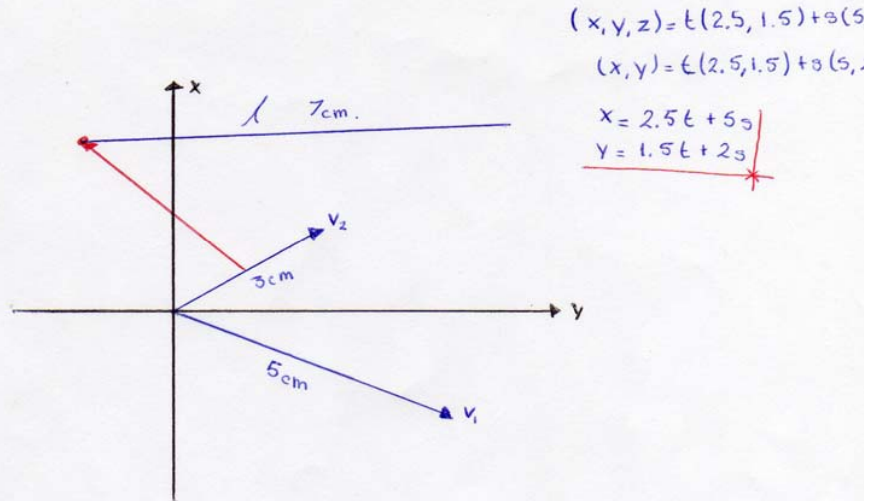 (x, y, z) = t(2.5, 1.5) + s(5
(x, y) = t(2.5, 1.5) + s(5,
x = 2.5t + 5s
y = 1.5t + 2s
x
l 7cm.
v₂
3cm
y
5cm
v₁